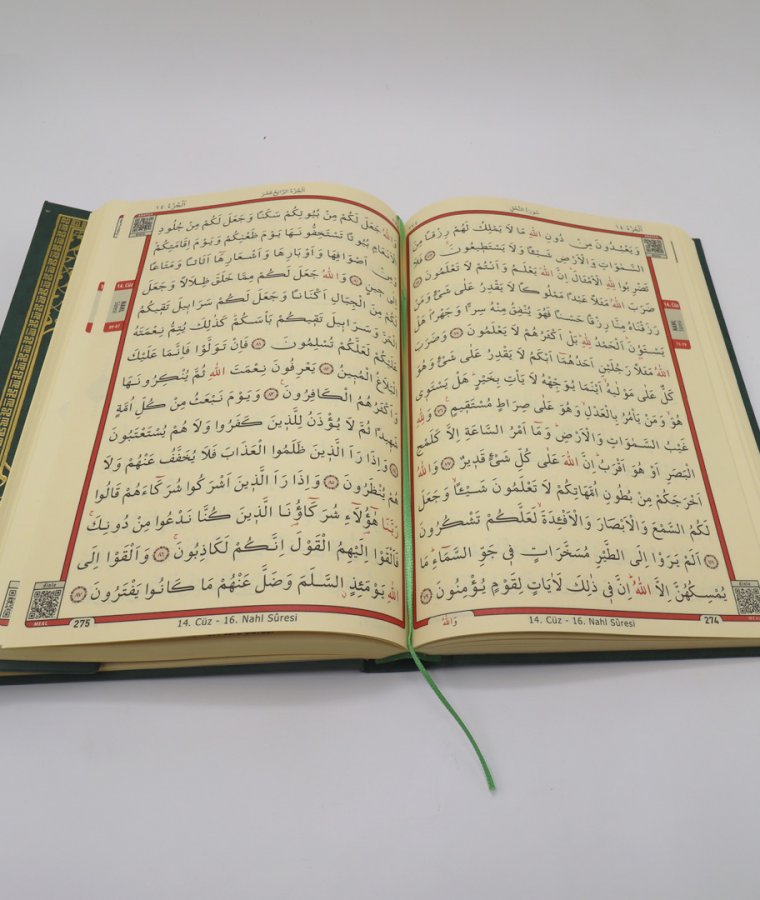 سورة النحل
الجزء ١٤
وَيَعْبُدُونَ مِنْ دُونِ اللّٰهِ مَا لَا يَمْلِكُ لَهُمْ رِزْقًا مِنَ
السَّمٰوَاتِ وَالْاَرْضِ شَيْـًٔا وَلَا يَسْتَطِيعُونَ ۝٧٣ فَلَا
تَضْرِبُوا لِلّٰهِ الْاَمْثَالَ اِنَّ اللّٰهَ يَعْلَمُ وَاَنْتُمْ لَا تَعْلَمُونَ ۝٧٤
ضَرَبَ اللّٰهُ مَثَلًا عَبْدًا مَمْلُوكًا لَا يَقْدِرُ عَلٰى شَىْءٍ وَمَنْ
رَزَقْنَاهُ مِنَّا رِزْقًا حَسَنًا فَهُوَ يُنْفِقُ مِنْهُ سِرًّا وَجَهْرًا هَلْ
يَسْتَوُ۫نَ اَلْحَمْدُ لِلّٰهِ بَلْ اَكْثَرُهُمْ لَا يَعْلَمُونَ ۝٧٥ وَضَرَبَ
اللّٰهُ مَثَلًا رَجُلَيْنِ اَحَدُهُمَٓا اَبْكَمُ لَا يَقْدِرُ عَلٰى شَىْءٍ وَهُوَ
كَلٌّ عَلٰى مَوْلٰيهُ اَيْنَمَا يُوَجِّهْهُ لَا يَأْتِ بِخَيْرٍ هَلْ يَسْتَوٖى
هُوَ وَمَنْ يَأْمُرُ بِالْعَدْلِ وَهُوَ عَلٰى صِرَاطٍ مُسْتَقٖيمٍ ۝٧٦ وَلِلّٰهِ
غَيْبُ السَّمٰوَاتِ وَالْاَرْضِ وَمَٓا اَمْرُ السَّاعَةِ اِلَّا كَلَمْحِ
الْبَصَرِ اَوْ هُوَ اَقْرَبُ اِنَّ اللّٰهَ عَلٰى كُلِّ شَىْءٍ قَدٖيرٌ ۝٧٧ وَاللّٰهُ
اَخْرَجَكُمْ مِنْ بُطُونِ اُمَّهَاتِكُمْ لَا تَعْلَمُونَ شَيْـًٔا وَجَعَلَ
لَكُمُ السَّمْعَ وَالْاَبْصَارَ وَالْاَفْـِٔدَةَ لَعَلَّكُمْ تَشْكُرُونَ
۝٧٨ اَلَمْ يَرَوْا اِلَى الطَّيْرِ مُسَخَّرَاتٍ فٖى جَوِّ السَّمَٓاءِ مَا
يُمْسِكُهُنَّ اِلَّا اللّٰهُ اِنَّ فٖى ذٰلِكَ لَاٰيَاتٍ لِقَوْمٍ يُؤْمِنُونَ ۝٧٩
وَاللّٰهُ
14. Cüz - 16. Nahl Sûresi
274
14. Cüz
dinle
الجزء الرابع عشر
الجزء ١٤
وَاللّٰهُ جَعَلَ لَكُمْ مِنْ بُيُوتِكُمْ سَكَنًا وَجَعَلَ لَكُمْ مِنْ جُلُودِ
الْاَنْعَامِ بُيُوتًا تَسْتَخِفُّونَهَا يَوْمَ ظَعْنِكُمْ وَيَوْمَ اِقَامَتِكُمْ
وَمِنْ اَصْوَافِهَا وَاَوْبَارِهَا وَاَشْعَارِهَٓا اَثَاثًا وَمَتَاعًا
اِلٰى حٖينٍ ۝٨٠ وَاللّٰهُ جَعَلَ لَكُمْ مِمَّا خَلَقَ ظِلَالًا وَجَعَلَ
لَكُمْ مِنَ الْجِبَالِ اَكْنَانًا وَجَعَلَ لَكُمْ سَرَابٖيلَ تَقٖيكُمُ
الْحَرَّ وَسَرَابٖيلَ تَقٖيكُمْ بَأْسَكُمْ كَذٰلِكَ يُتِمُّ نِعْمَتَهُ
عَلَيْكُمْ لَعَلَّكُمْ تُسْلِمُونَ ۝٨١ فَاِنْ تَوَلَّوْا فَاِنَّمَا عَلَيْكَ
الْبَلَاغُ الْمُبٖينُ ۝٨٢ يَعْرِفُونَ نِعْمَتَ اللّٰهِ ثُمَّ يُنْكِرُونَهَا
وَاَكْثَرُهُمُ الْكَافِرُونَ ۝٨٣ وَيَوْمَ نَبْعَثُ مِنْ كُلِّ اُمَّةٍ
شَهٖيدًا ثُمَّ لَا يُؤْذَنُ لِلَّذٖينَ كَفَرُوا وَلَا هُمْ يُسْتَعْتَبُونَ
۝٨٤ وَاِذَا رَاَ الَّذٖينَ ظَلَمُوا الْعَذَابَ فَلَا يُخَفَّفُ عَنْهُمْ وَلَا
هُمْ يُنْظَرُونَ ۝٨٥ وَاِذَا رَاَ الَّذٖينَ اَشْرَكُوا شُرَكَٓاءَهُمْ قَالُوا
رَبَّنَا هٰٓؤُ۬لَٓاءِ شُرَكَٓاؤُ۬نَا الَّذٖينَ كُنَّا نَدْعُوا مِنْ دُونِكَ
فَاَلْقَوْا اِلَيْهِمُ الْقَوْلَ اِنَّكُمْ لَكَاذِبُونَ ۝٨٦ وَاَلْقَوْا اِلَى
اللّٰهِ يَوْمَئِذٍ السَّلَمَ وَضَلَّ عَنْهُمْ مَا كَانُوا يَفْتَرُونَ ۝٨٧
14. Cüz - 16. Nahl Sûresi
275
MEAL
14. Cüz
dinle